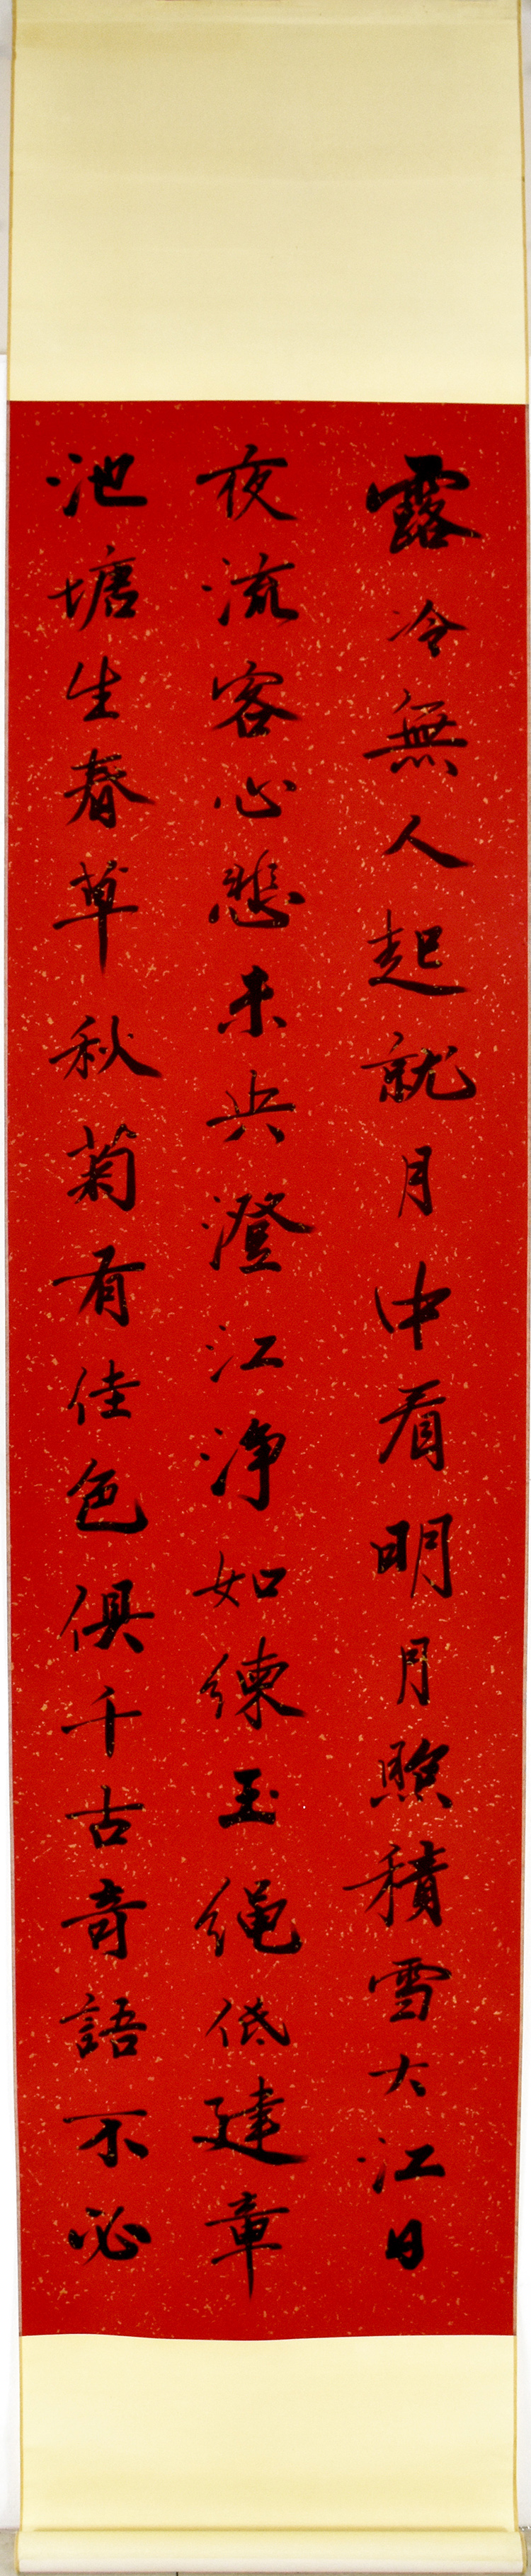 露冷無人起就月中看明月照積雪大江日
夜流客心悲未央澄江淨如練玉繩低建章
池塘生春草秋菊有佳色俱千古奇語不必